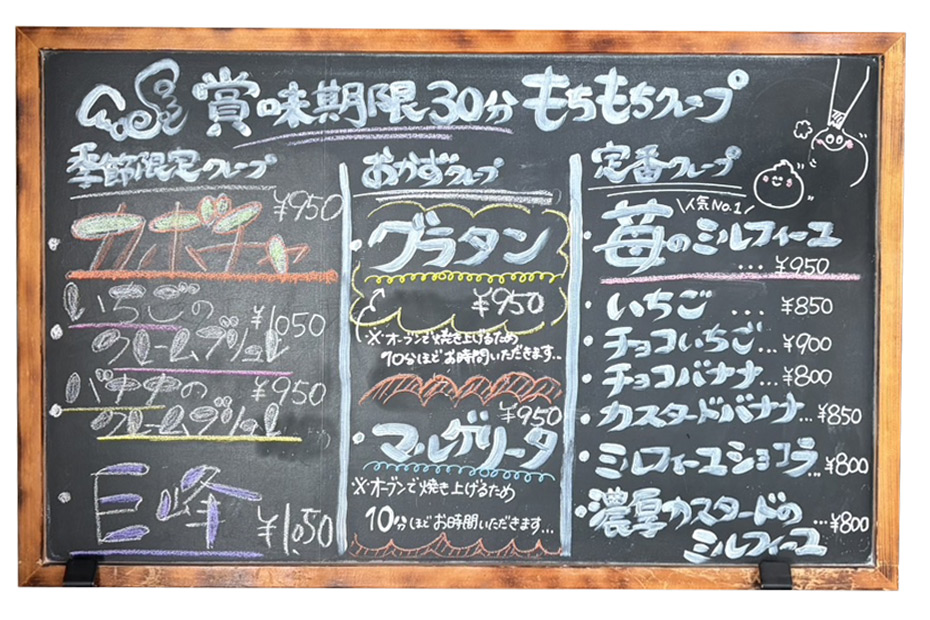 賞味期限30分 もちもちクレープ
季節限定クレープ
¥950
カボチャ
いちごの
¥1050
クリームブリュレ
バナナの
¥950
クリームブリュレ
巨峰
¥1,050
おかずクレープ
グラタン
¥950
※オーブンで焼き上げるため
10分ほどお時間いただきます...
¥950
マルゲリータ
※オーブンで焼き上げるため
10分ほどお時間いただきます...
定番クレープ
\人気No.1/
・苺のミルフィーユ
... ¥950
・いちご ... ¥850
・チョコいちご... ¥900
・チョコバナナ... ¥800
・カスタードバナナ... ¥850
・ミルフィーユショコラ... ¥800
・濃厚カスタードの
ミルフィーユ ... ¥800